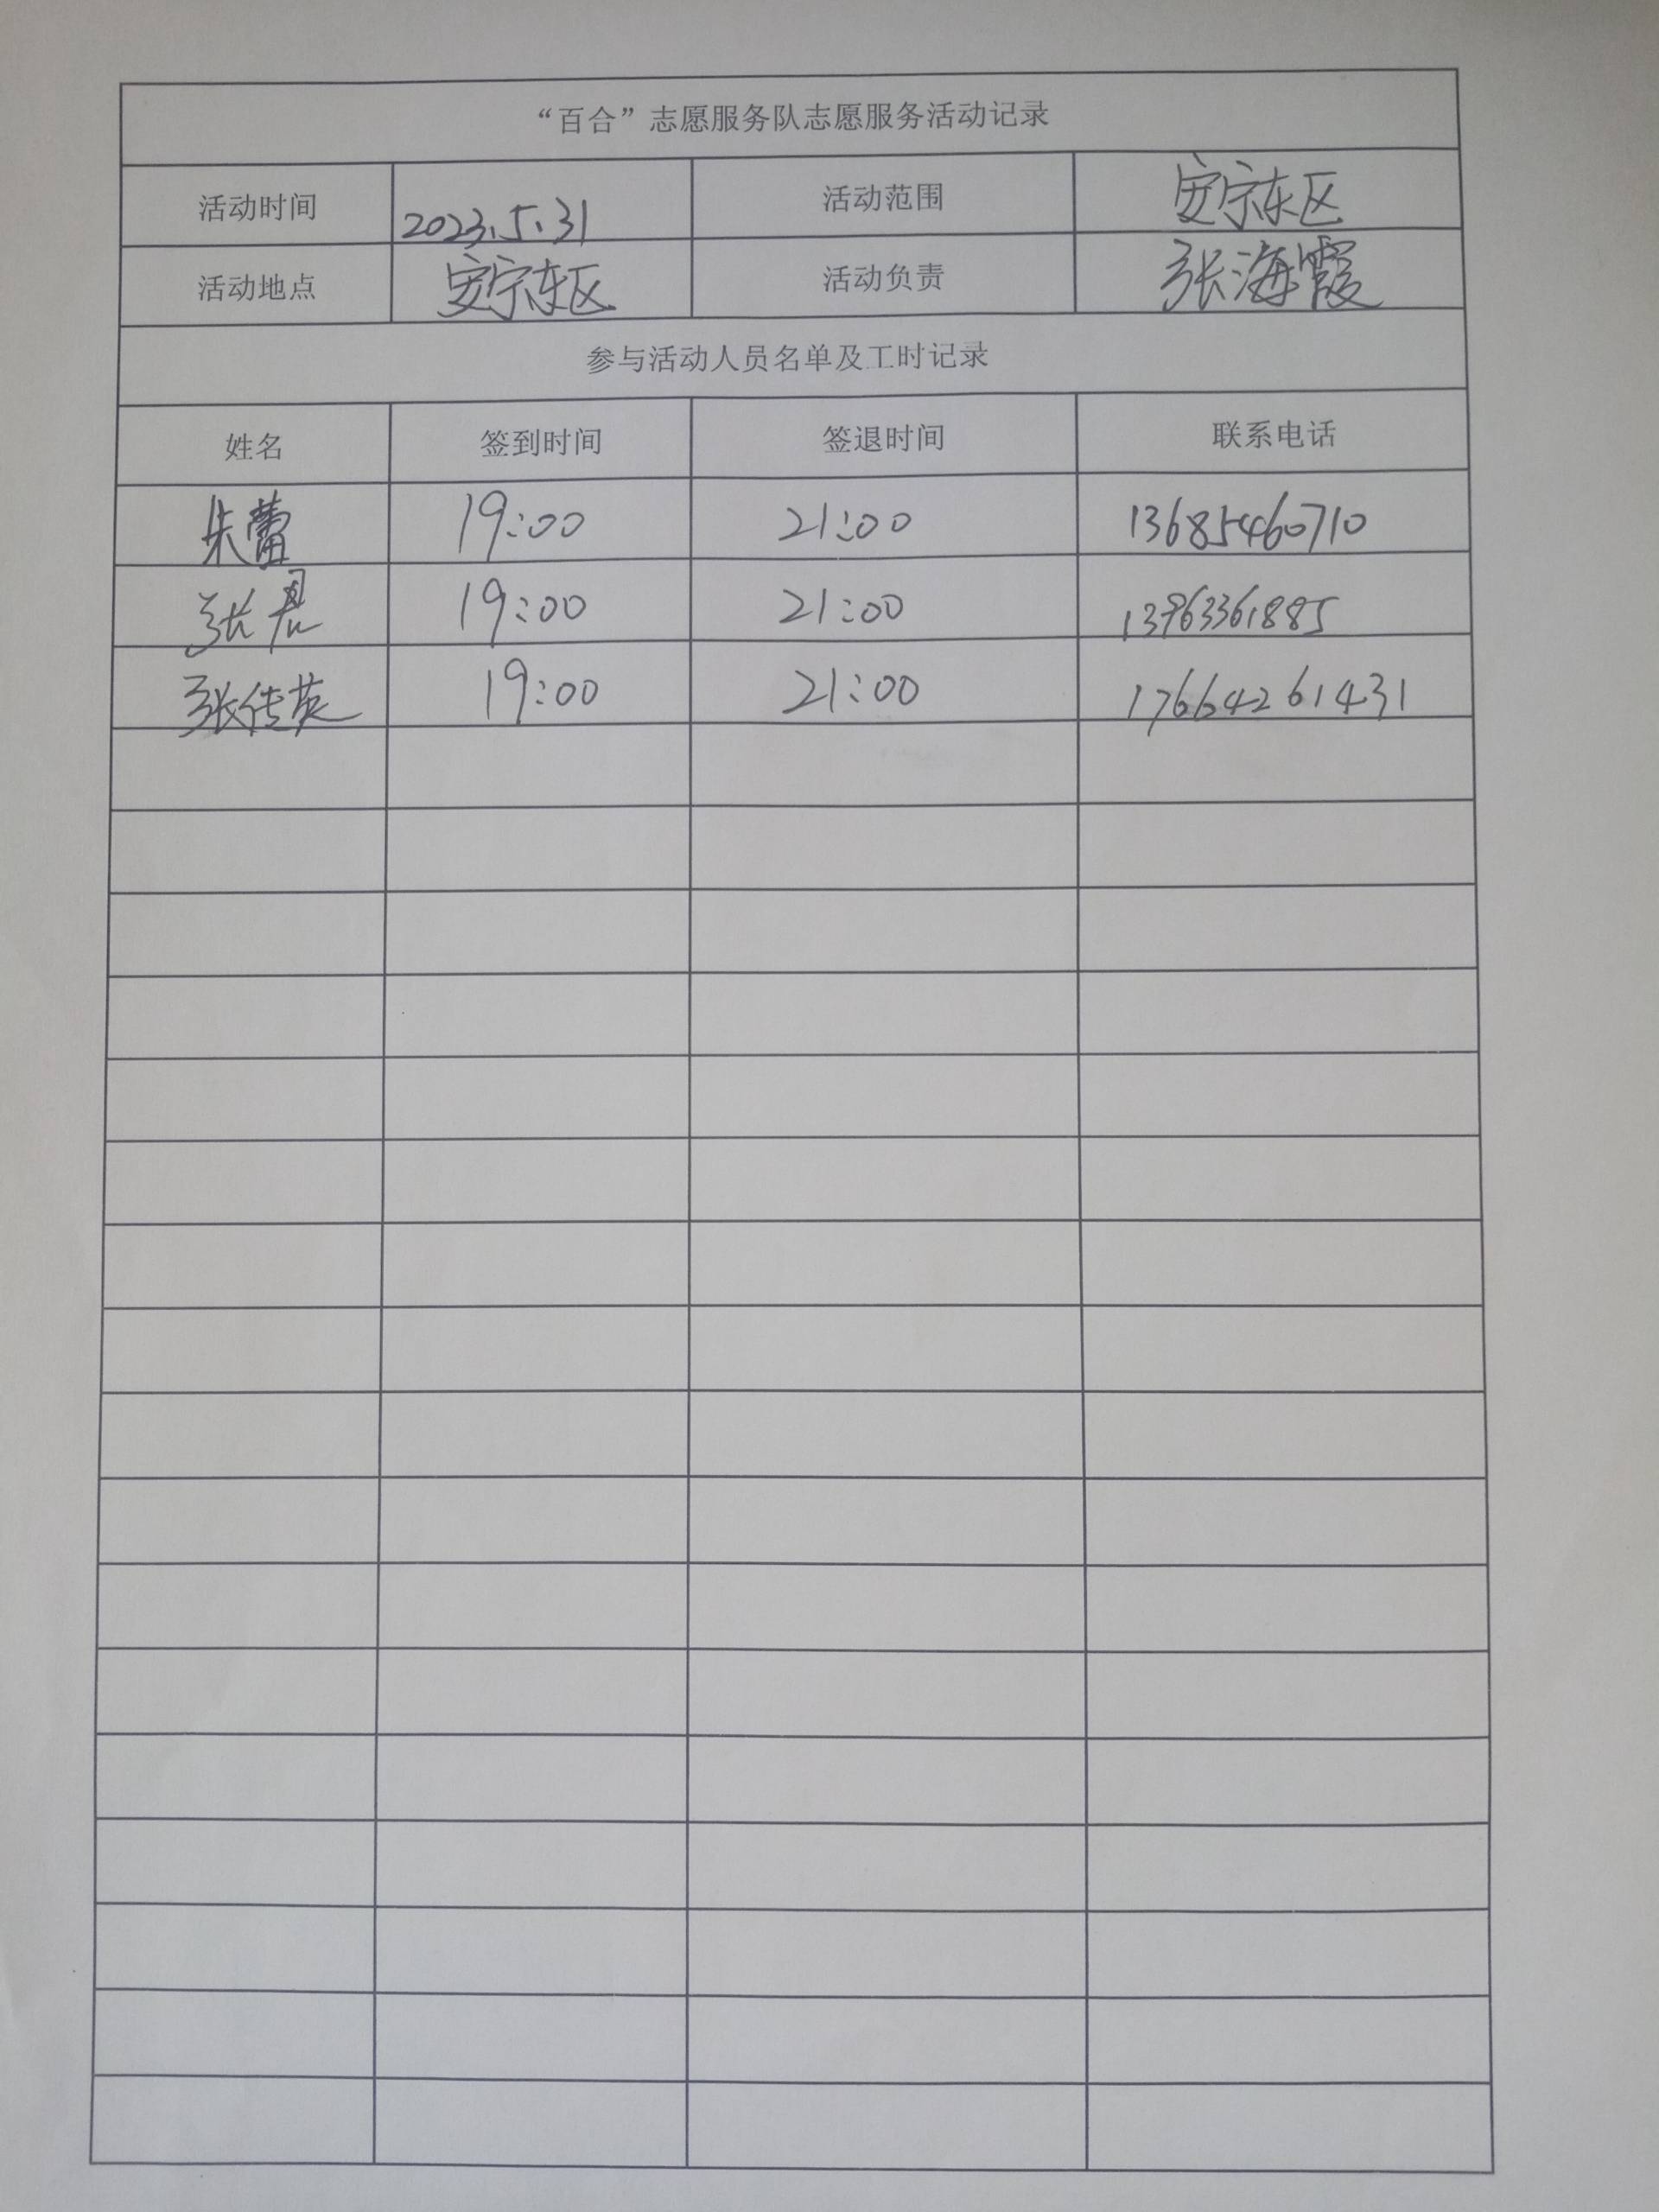 “百合”志愿服务队志愿服务活动记录
活动时间 2023.5.31 活动范围 安宁东区
活动地点 安宁东区 活动负责 张海霞
参与活动人员名单及工时记录
姓名 签到时间 签退时间 联系电话
朱蕾 19:00 21:00 13685460710
张君 19:00 21:00 13963361885
张传英 19:00 21:00 17664261431